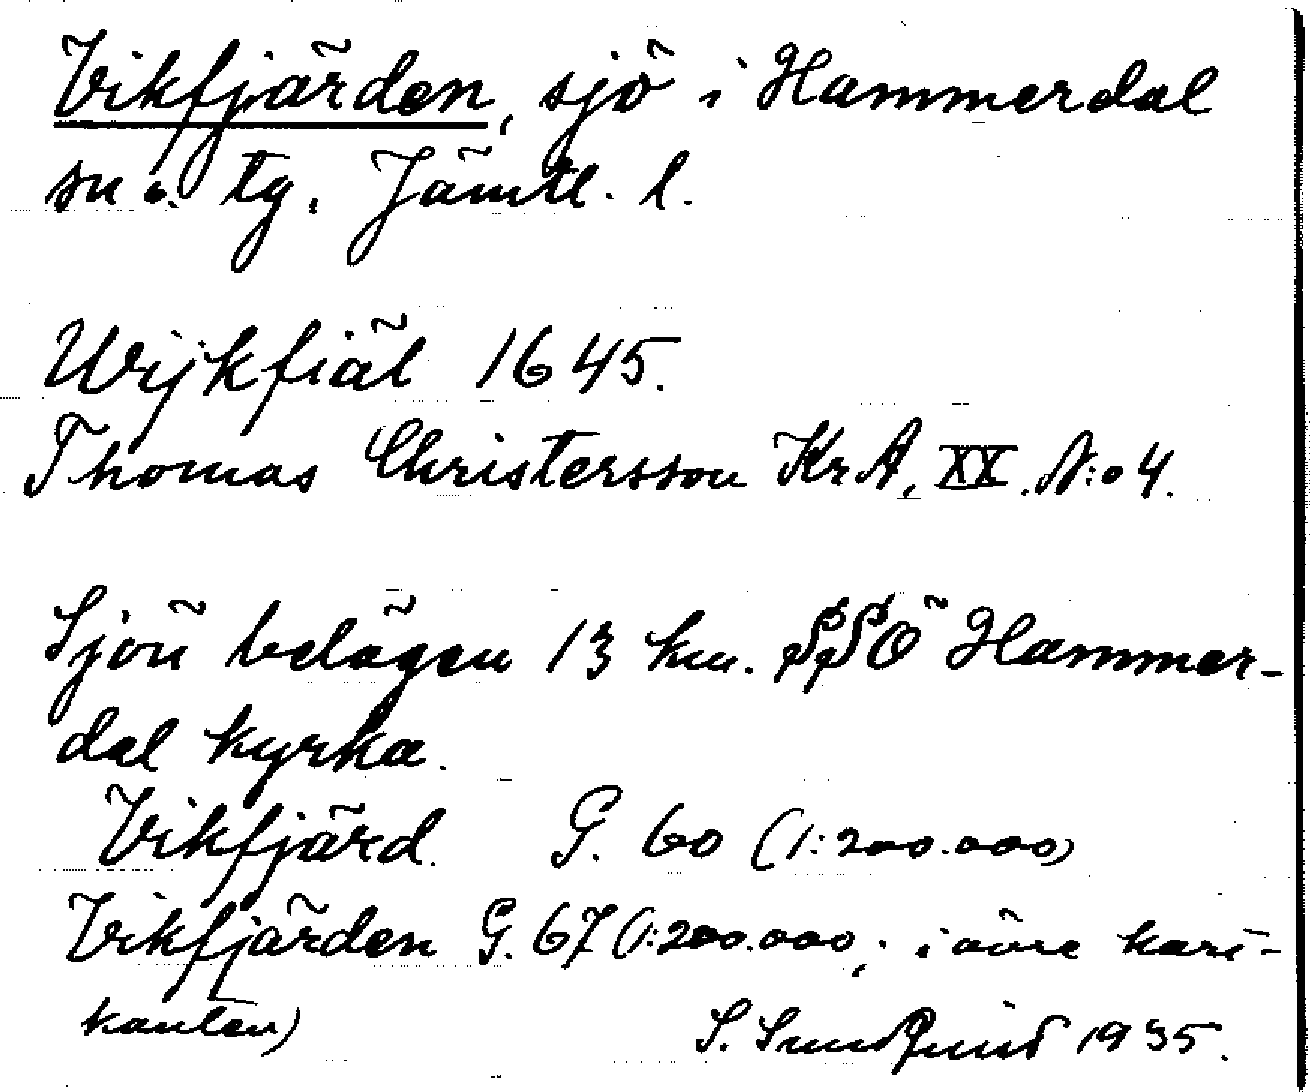 Vikfjärden, sjö i Hammerdal
sn o. tg. Jämtl. l.
Wijkfiäl 1645.
Thomas Christersson KrA, XX. N:o 4.
Sjön belägen 13 km. SSÖ Hammer-
dal kyrka.
Vikfjärd. G. 60 (1:200.000)
Vikfjärden G. 67 (1:200.000; i övre kart-
kanten)
S. Sundquist 1935.